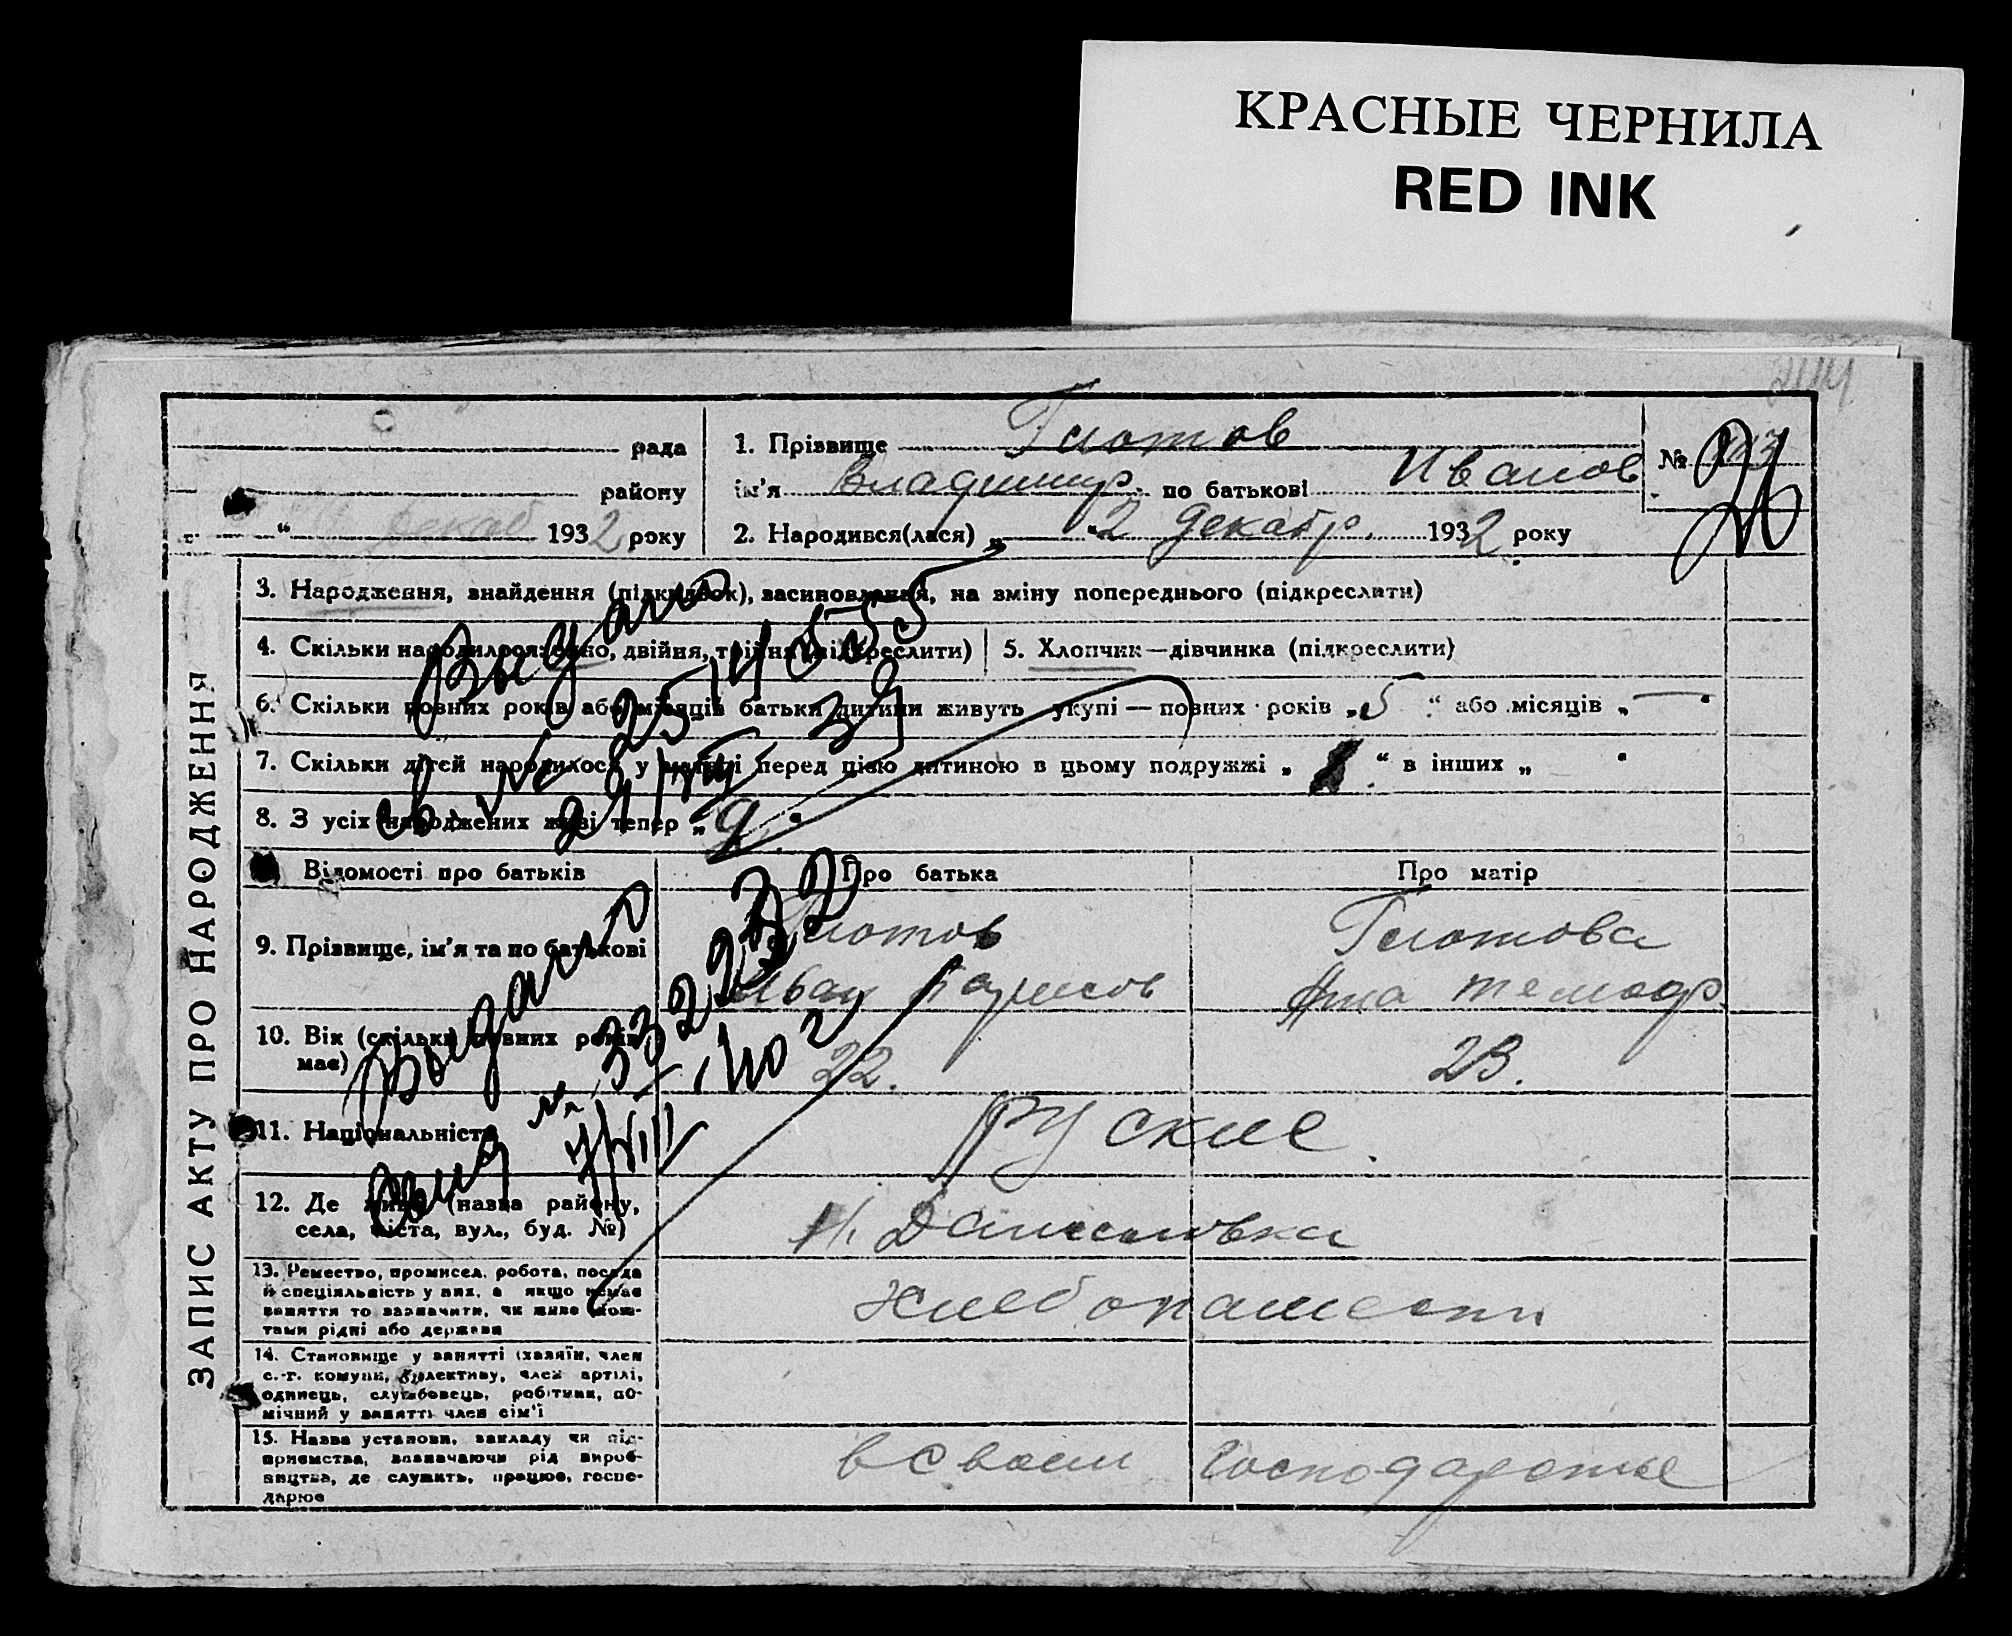 КРАСНЫЕ ЧЕРНИЛА
RED INK
рада
району
" декаб 1932 року
1. Прізвище Глотов
ім'я Владимир. по батькові Иванов
2. Народився(лася) „ 2 " декабр. 1932 року
№
ЗАПИС АКТУ ПРО НАРОДЖЕННЯ
3. Народження, знайдення (підкидьок), засиновлення, на зміну попереднього (підкреслити)
4. Скільки народилося: одно, двійня, трійня (підкреслити)
5. Хлопчик—дівчинка (підкреслити)
6. Скільки повних років або місяців батьки дитини живуть укупі — повних років „5" або місяців „—"
7. Скільки дітей народилося у матері перед цією дитиною в цьому подружжі „ " в інших „ "
8. З усіх народжених живі тепер „2."
Выдано
св. №
Відомості про батьків
Про батька
Про матір
9. Прізвище, ім'я та по батькові
Глотов
Иван
Глотова
Анна
10. Вік (скільки повних років має)
22.
23.
Выдано
№ 332232
11. Національність
Руские.
12. Де живе (назва району,
села, міста, вул., буд. №)
Н. Даниловка
13. Ремество, промисел, робота, посада
й спеціяльність у них, а якщо немає
заняття то зазначити, чи живе кош-
тами рідні або держави
Хлебопашеств
14. Становище у занятті (хазяїн, член
с.-г. комуни, колективу, член артілі,
одинець, службовець, робітник, по-
мічний у занятті член сім'ї
15. Назва установи, закладу чи під-
приємства, зазначаючи рід вироб-
ництва, де служить, працює, госпо-
дарює
в своем